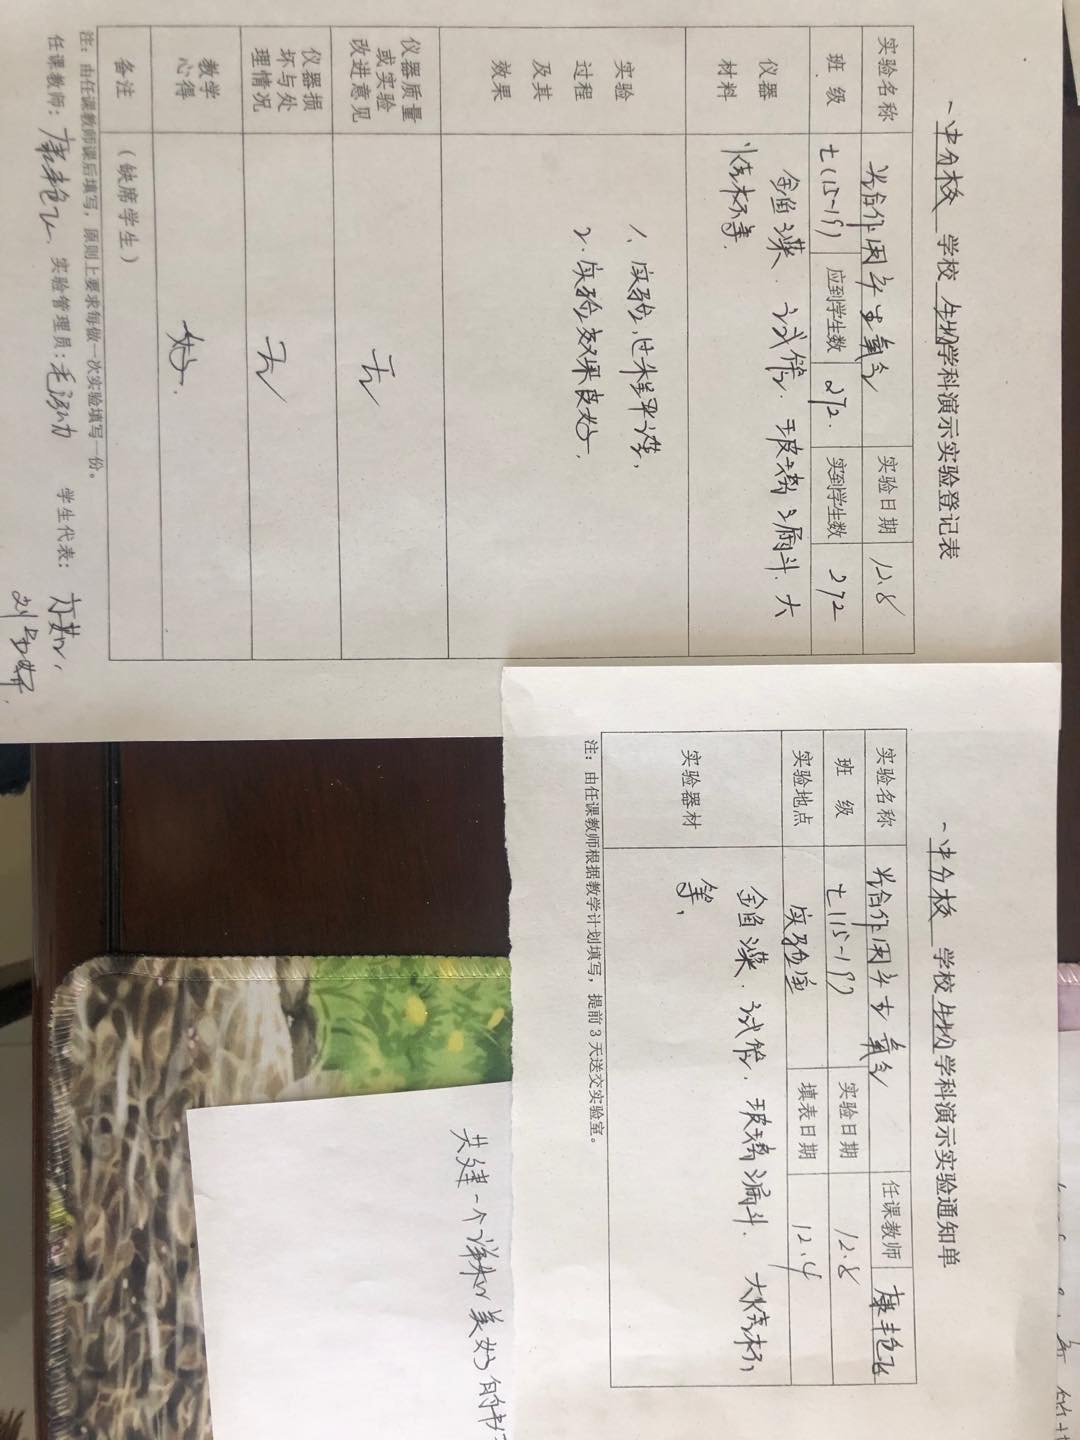 一中分校 学校 生物 学科演示实验登记表
实验名称 光合作用产生氧气 实验日期 12.8
班 级 七(15-19) 应到学生数 272. 实到学生数 272
仪器材料 金鱼藻. 试管. 玻璃漏斗. 大
烧杯等.
实验过程及其效果
1、实验过程严谨,
2.实验效果良好.
仪器质量或实验改进意见 无
仪器损坏与处理情况 无
教学心得 好.
备注 (缺席学生)
注:由任课教师课后填写,原则上要求每做一次实验填写一份。
任课教师: 实验管理员: 学生代表:
一中分校 学校 生物 学科演示实验通知单
实验名称 光合作用产生氧气 任课教师
班 级 七(15-19) 实验日期 12.8
实验地点 实验室 填表日期 12.4
实验器材 金鱼藻. 试管. 玻璃漏斗. 大烧杯,
等,
注:由任课教师根据教学计划填写,提前3天送交实验室。
共建一个 美好的